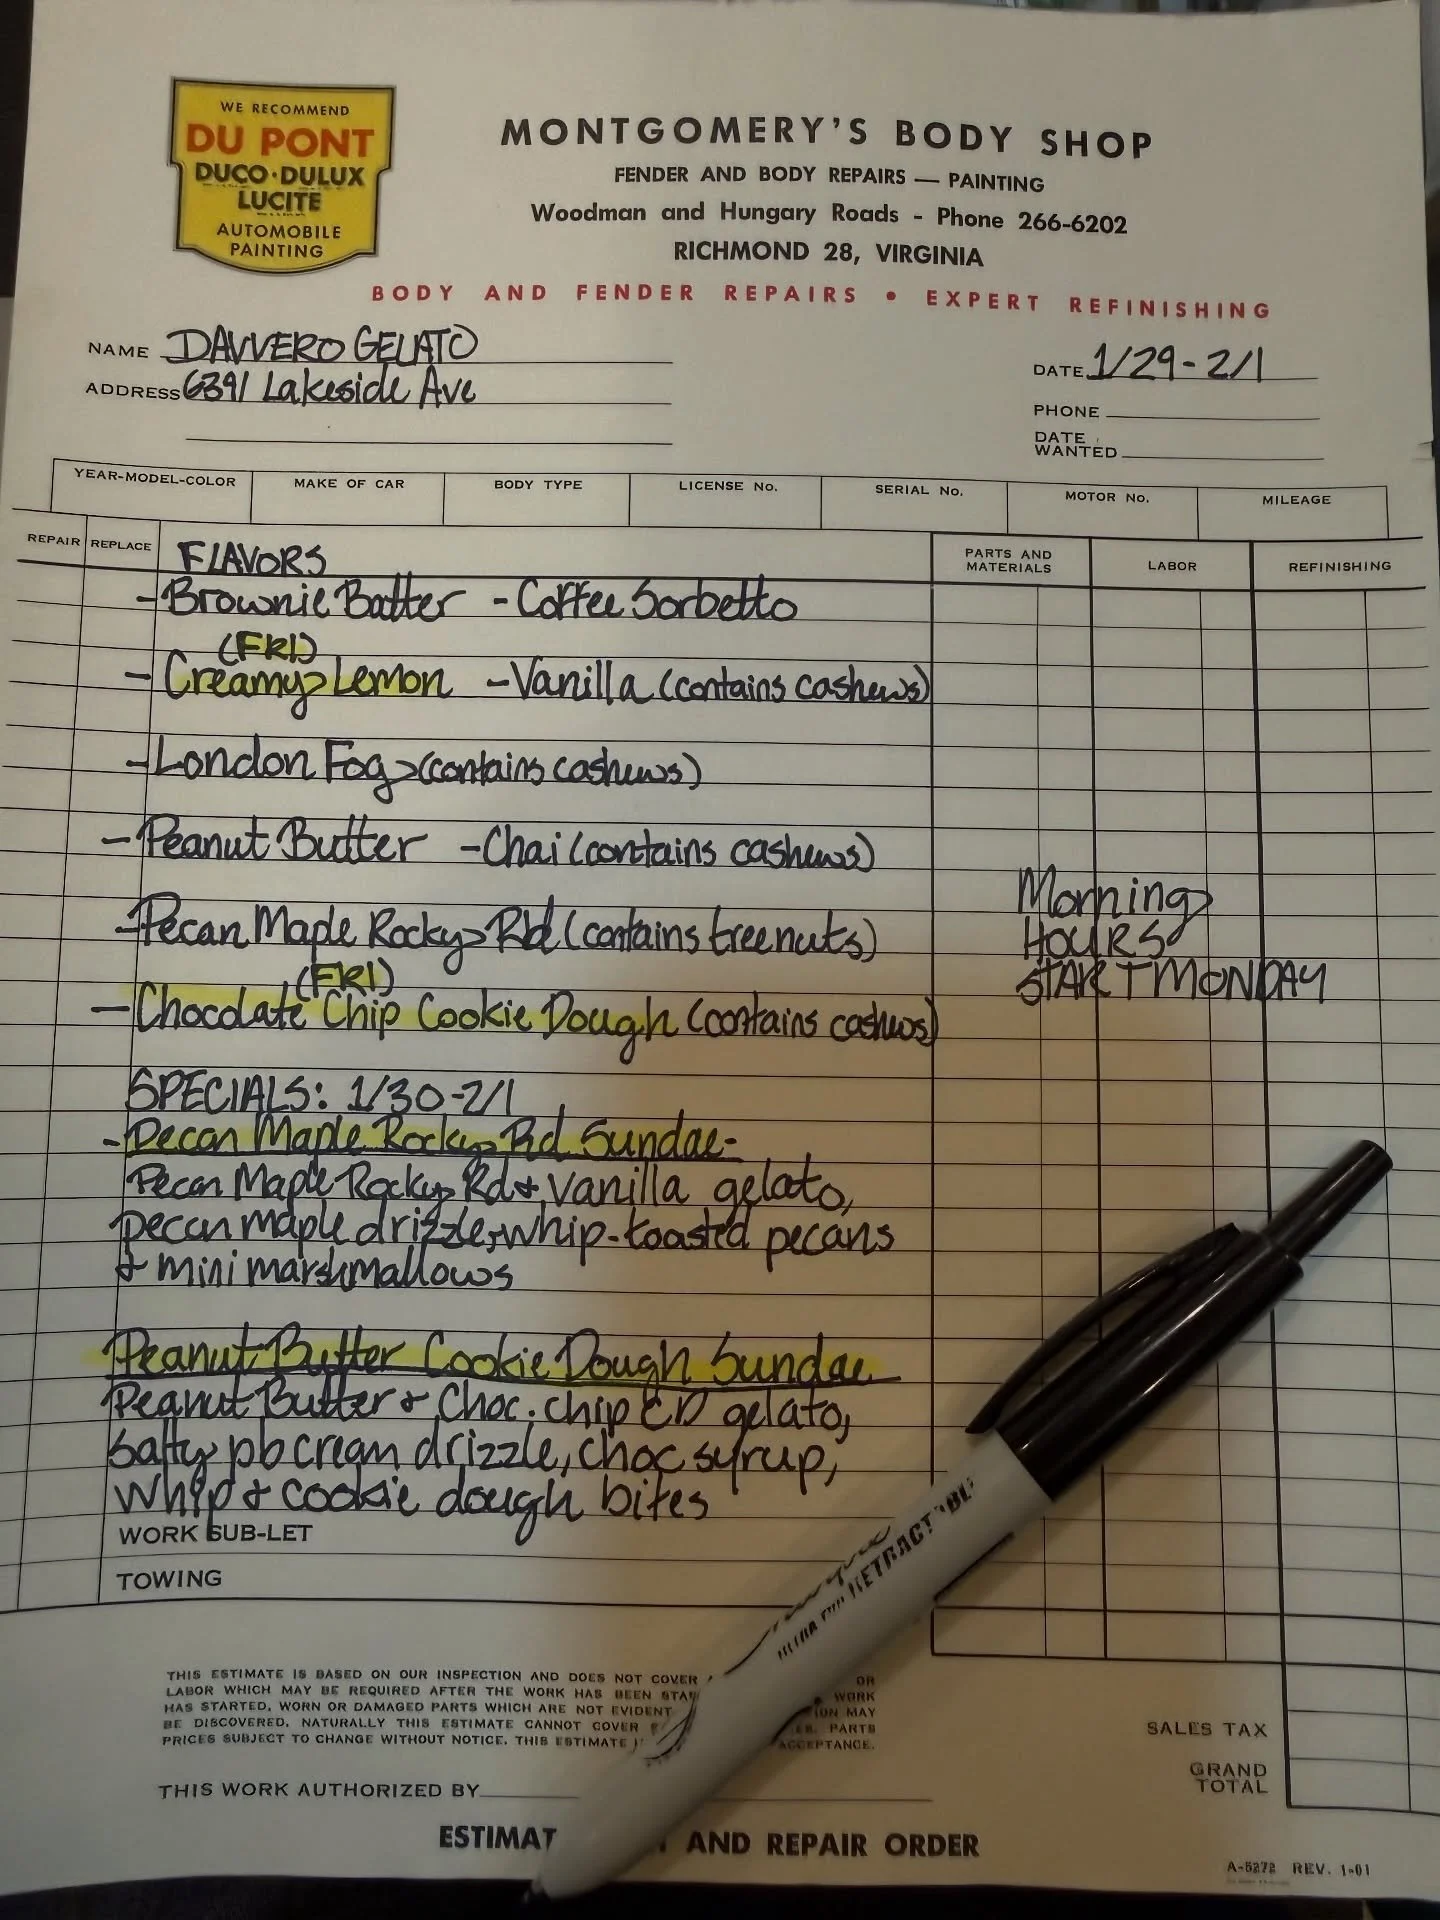 WE RECOMMEND
DU PONT
DUCO·DULUX
LUCITE
AUTOMOBILE
PAINTING
MONTGOMERY'S BODY SHOP
FENDER AND BODY REPAIRS — PAINTING
Woodman and Hungary Roads - Phone 266-6202
RICHMOND 28, VIRGINIA
BODY AND FENDER REPAIRS • EXPERT REFINISHING
NAME DAVVERO GELATO
ADDRESS 6391 Lakeside Ave
DATE 1/29-2/1
PHONE
DATE
WANTED
YEAR-MODEL-COLOR MAKE OF CAR BODY TYPE LICENSE No. SERIAL No. MOTOR No. MILEAGE
REPAIR REPLACE FLAVORS
PARTS AND
MATERIALS
LABOR REFINISHING
-Brownie Batter -Coffee Sorbetto
(FRI)
-Creamy Lemon -Vanilla (contains cashews)
-London Fog (contains cashews)
-Peanut Butter -Chai (contains cashews)
-Pecan Maple Rocky Rd (contains treenuts)
(FRI)
-Chocolate Chip Cookie Dough (contains cashews)
Morning
HOURS
START MONDAY
SPECIALS: 1/30-2/1
-Pecan Maple Rocky Rd Sundae-
Pecan Maple Rocky Rd + Vanilla gelato,
pecan maple drizzle, whip-toasted pecans
+ mini marshmallows
Peanut Butter Cookie Dough Sundae
Peanut Butter + Choc. chip CD gelato,
Salty pb cream drizzle, choc syrup,
whip + cookie dough bites
WORK SUB-LET
TOWING
THIS ESTIMATE IS BASED ON OUR INSPECTION AND DOES NOT COVER OR
LABOR WHICH MAY BE REQUIRED AFTER THE WORK HAS BEEN WORK
HAS STARTED, WORN OR DAMAGED PARTS WHICH ARE NOT EVIDENT MAY
BE DISCOVERED. NATURALLY THIS ESTIMATE CANNOT COVER PARTS
PRICES SUBJECT TO CHANGE WITHOUT NOTICE. THIS ESTIMATE ACCEPTANCE.
THIS WORK AUTHORIZED BY
SALES TAX
GRAND
TOTAL
ESTIMAT AND REPAIR ORDER
A-5272 REV. 1-01
RETRACTABLE